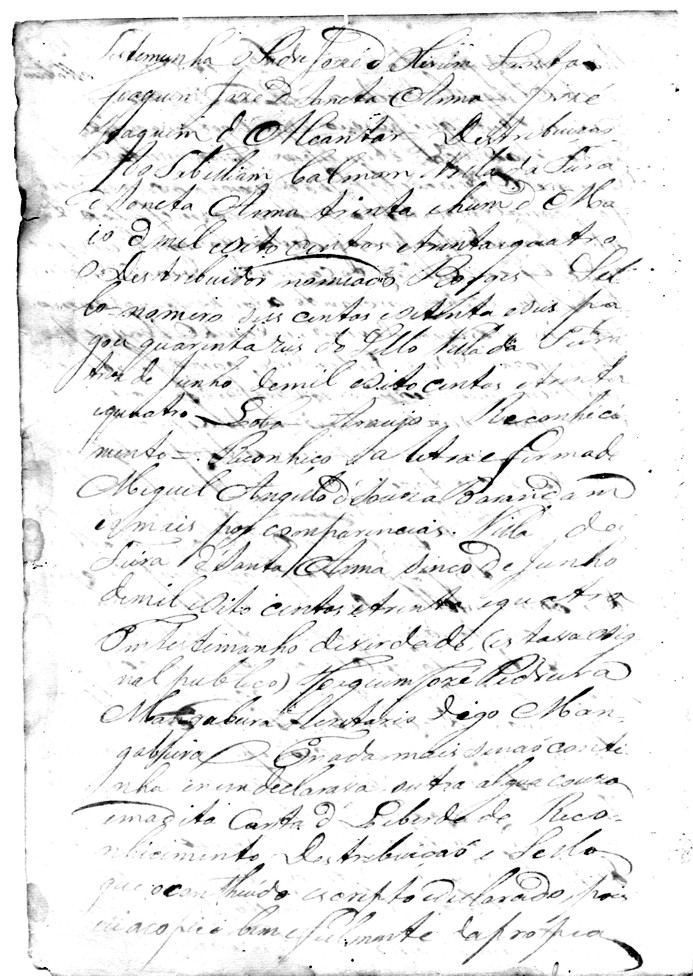 Testemunha Andre Joze d Oliveira Santa
Joaquim Joze d Sancta Anna Joze
Joaquim d Alcantar Destribuição
Calmon Villa da Feira
Sancta Anna trinta ehum d Ma
io d mil oito centos etrintaequatro
O Destribuidor nomiado Borges Sel
lo numero dois centos esetenta edois pa
gou quarenta reis do Sello Villa da Feira
tres de Junho demil eoito centos etrinta
equatro Lobo Araujo Reconheci
mento = Reconheco a letra e firma d
Miguel Angelo d'Souza
e mais por comparencias. Villa da
Feira d'Santa Anna Sinco de Junho
demil eoito centos etrinta equatro
Em testemunho deverdade (estava osig
nal publico) Joaquim Joze Pedreira
Mangabeira digo Man-
gabeira E nadamais senaõ conti
nha enem declarava outra algua couza
emadita Carta d Liberdade, Reco-
nhicimento, Destribuicaõ e Sello
que ocontheudo escripto edeclarado, pois
bem efielmente daprópria